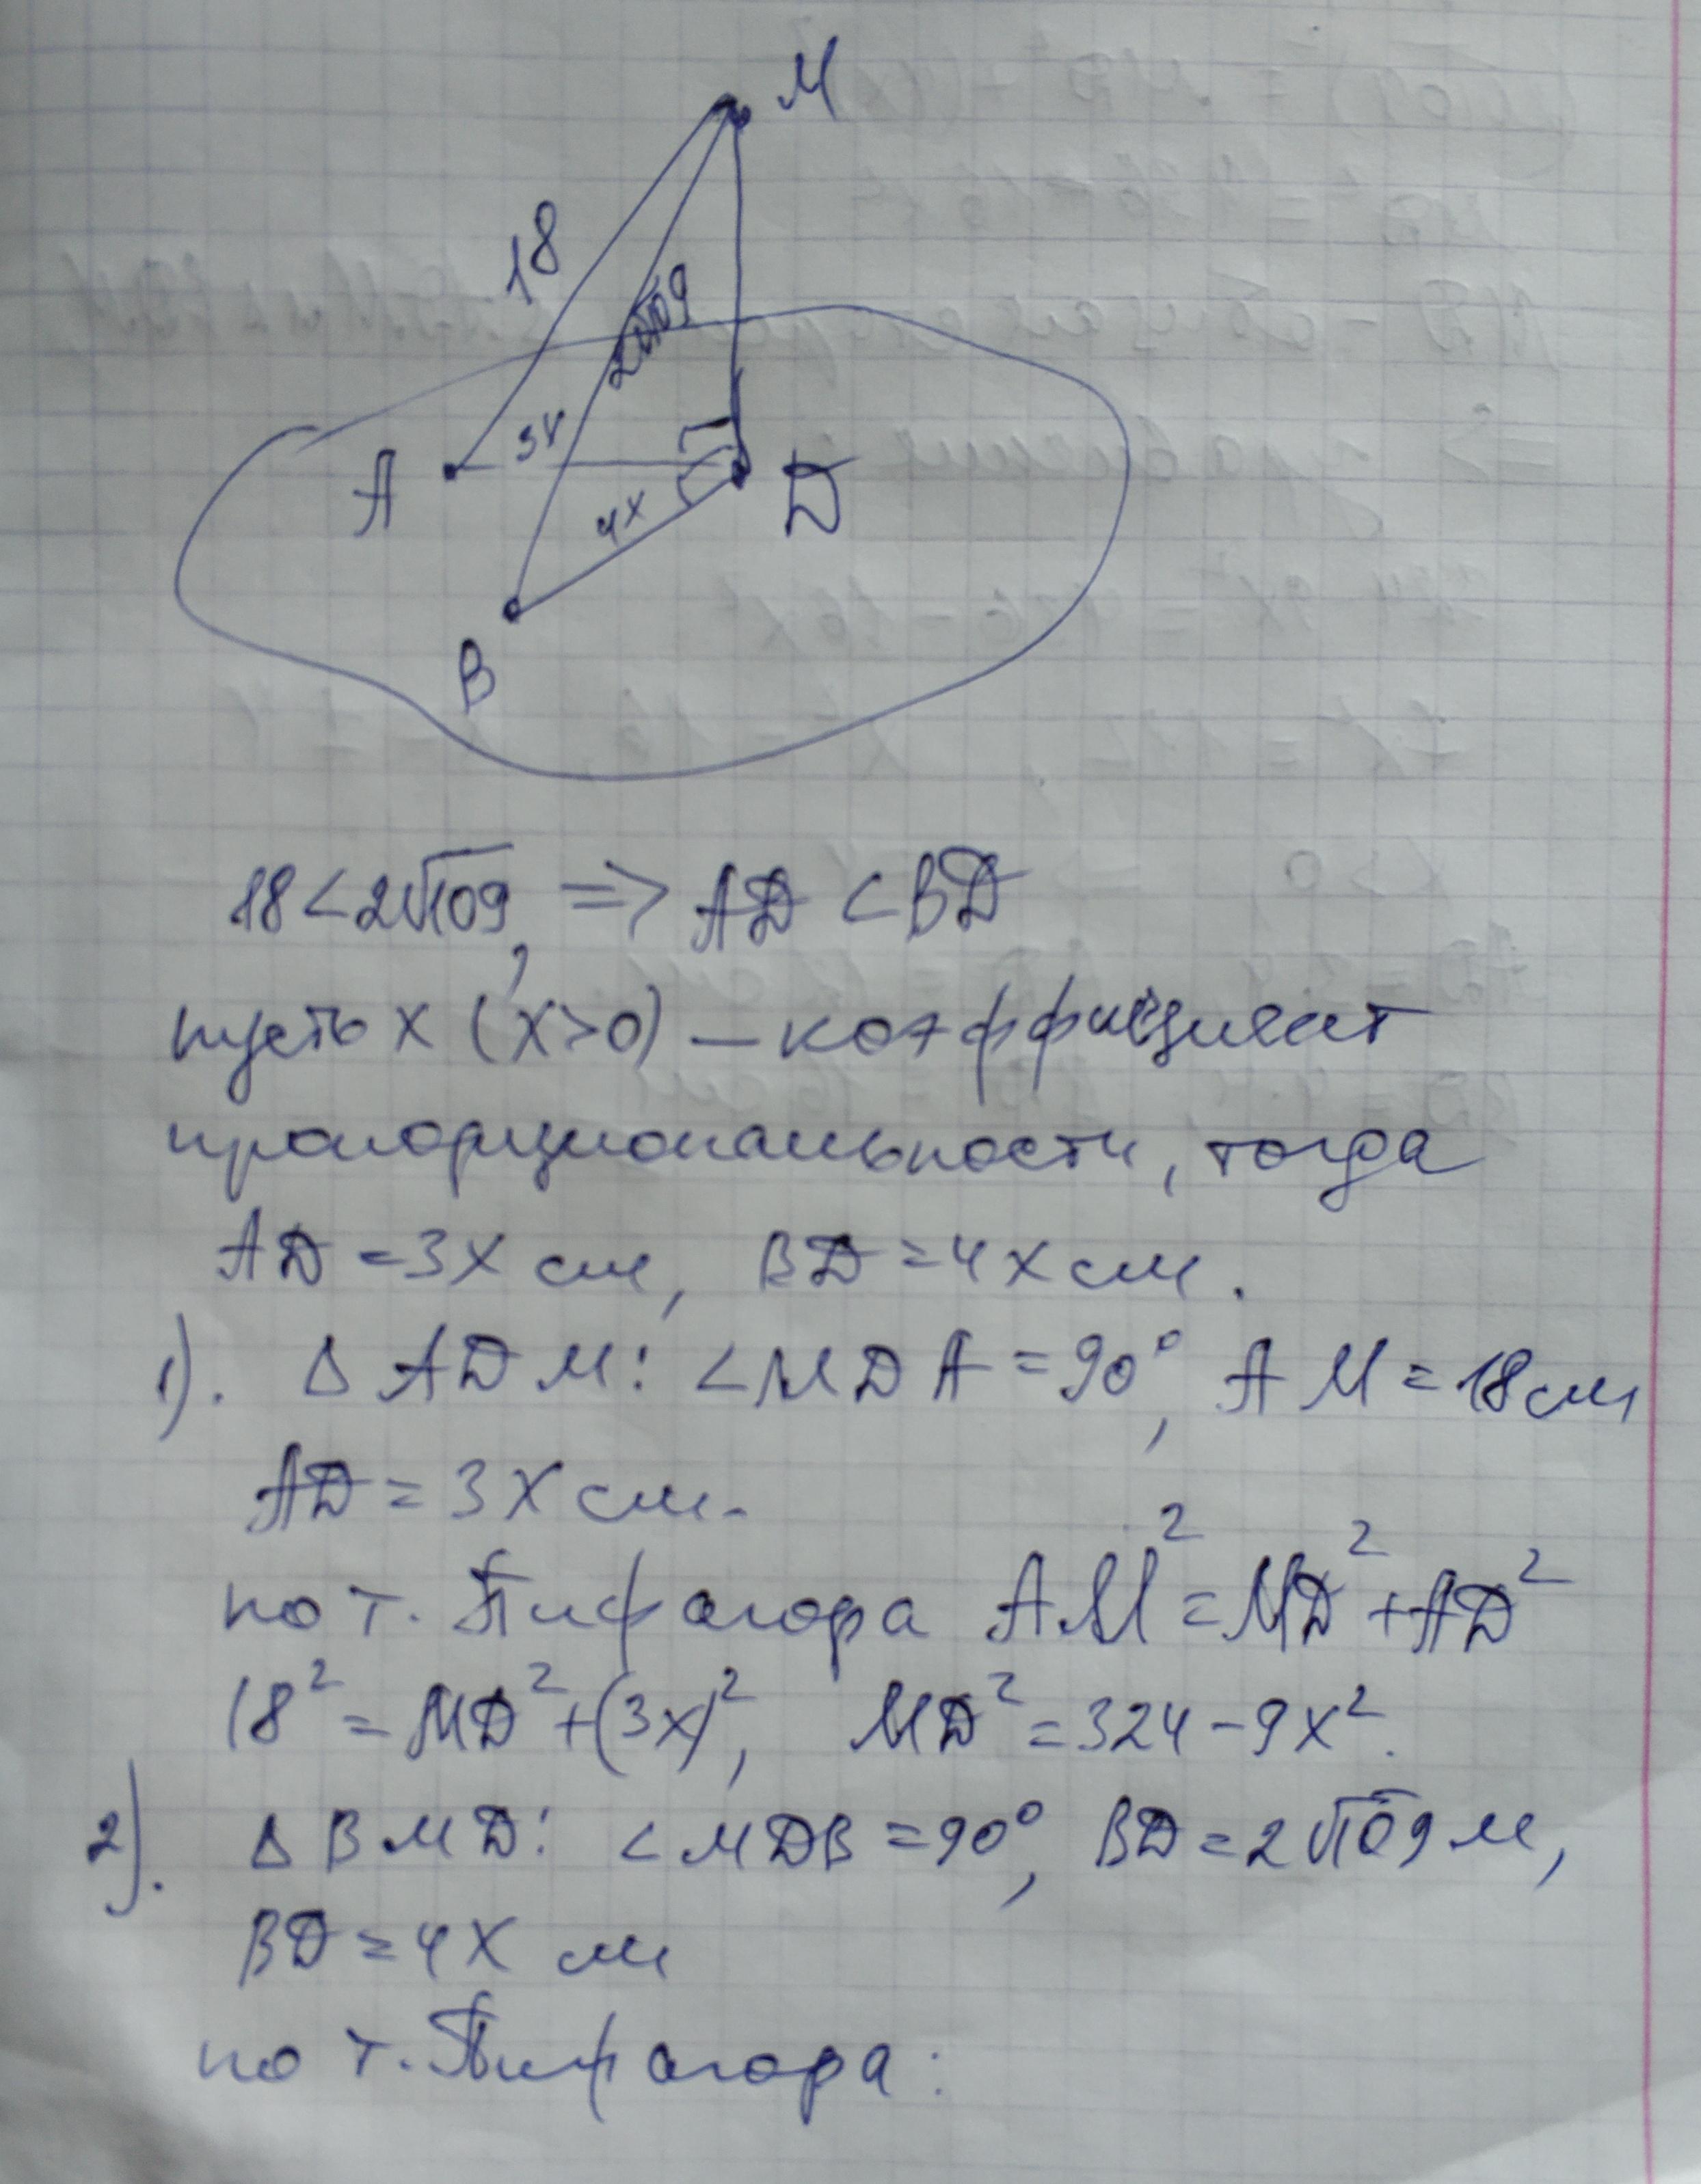 M
18
2√109
3x
A
4x
D
B
18<2√109, => AD <BD
пусть x (x>0) – коэффициент
пропорциональности, тогда
AD =3x см, BD =4x см.
1). Δ ADM: <MDA =90°, AM =18см
AD = 3x см.
по т. Пифагора AM²=MD²+AD²
18²=MD²+(3x)², MD²=324-9x².
2). Δ BMD: <MDB =90°, BD=2√109 м,
BD=4x см
по т. Пифагора: